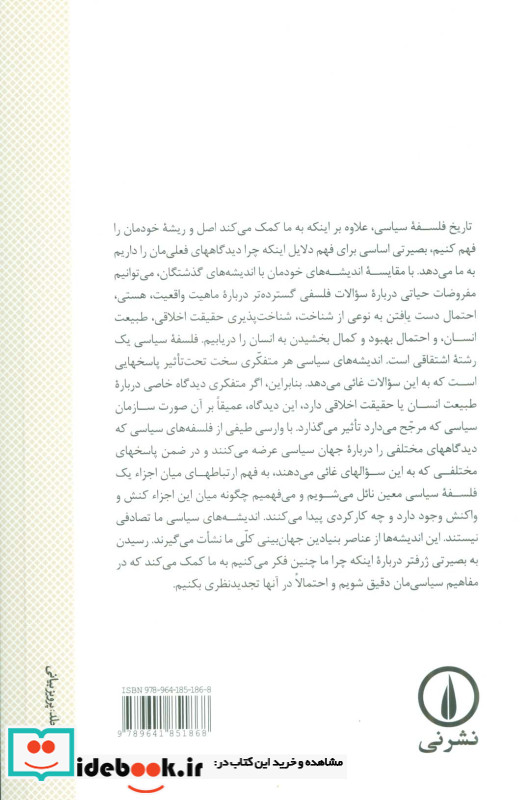 تاریخ فلسفهٔ سیاسی، علاوه بر اینکه به ما کمک می‌کند اصل و ریشهٔ خودمان را
فهم کنیم، بصیرتی اساسی برای فهم دلایل اینکه چرا دیدگاههای فعلی‌مان را داریم
به ما می‌دهد. با مقایسهٔ اندیشه‌های خودمان با اندیشه‌های گذشتگان، می‌توانیم
مفروضات حیاتی دربارهٔ سؤالات فلسفی گسترده‌تر دربارهٔ ماهیت واقعیت، هستی،
احتمال دست یافتن به نوعی از شناخت، شناخت‌پذیری حقیقت اخلاقی، طبیعت
انسان، و احتمال بهبود و کمال بخشیدن به انسان را دریابیم. فلسفهٔ سیاسی یک
رشتهٔ اشتقاقی است. اندیشه‌های سیاسی هر متفکّری سخت تحت‌تأثیر پاسخهایی
است که به این سؤالات غائی می‌دهد. بنابراین، اگر متفکری دیدگاه خاصی دربارهٔ
طبیعت انسان یا حقیقت اخلاقی دارد، این دیدگاه، عمیقاً بر آن صورت سازمان
سیاسی که مرجّح می‌دارد تأثیر می‌گذارد. با وارسی طیفی از فلسفه‌های سیاسی که
دیدگاههای مختلفی را دربارهٔ جهان سیاسی عرضه می‌کنند و در ضمن پاسخهای
مختلفی که به این سؤالهای غائی می‌دهند، به فهم ارتباطهای میان اجزاء یک
فلسفهٔ سیاسی معین نائل می‌شویم و می‌فهمیم چگونه میان این اجزاء کنش و
واکنش وجود دارد و چه کارکردی پیدا می‌کنند. اندیشه‌های سیاسی ما تصادفی
نیستند. این اندیشه‌ها از عناصر بنیادین جهان‌بینی کلّی ما نشأت می‌گیرند. رسیدن
به بصیرتی ژرفتر دربارهٔ اینکه چرا ما چنین فکر می‌کنیم به ما کمک می‌کند که در
مفاهیم سیاسی‌مان دقیق شویم و احتمالاً در آنها تجدیدنظری بکنیم.
پرویز بیانی
ISBN 978-964-185-186-8
9 789641 851868
نشرنی
مشاهده و خرید این کتاب در:
idebook.ir